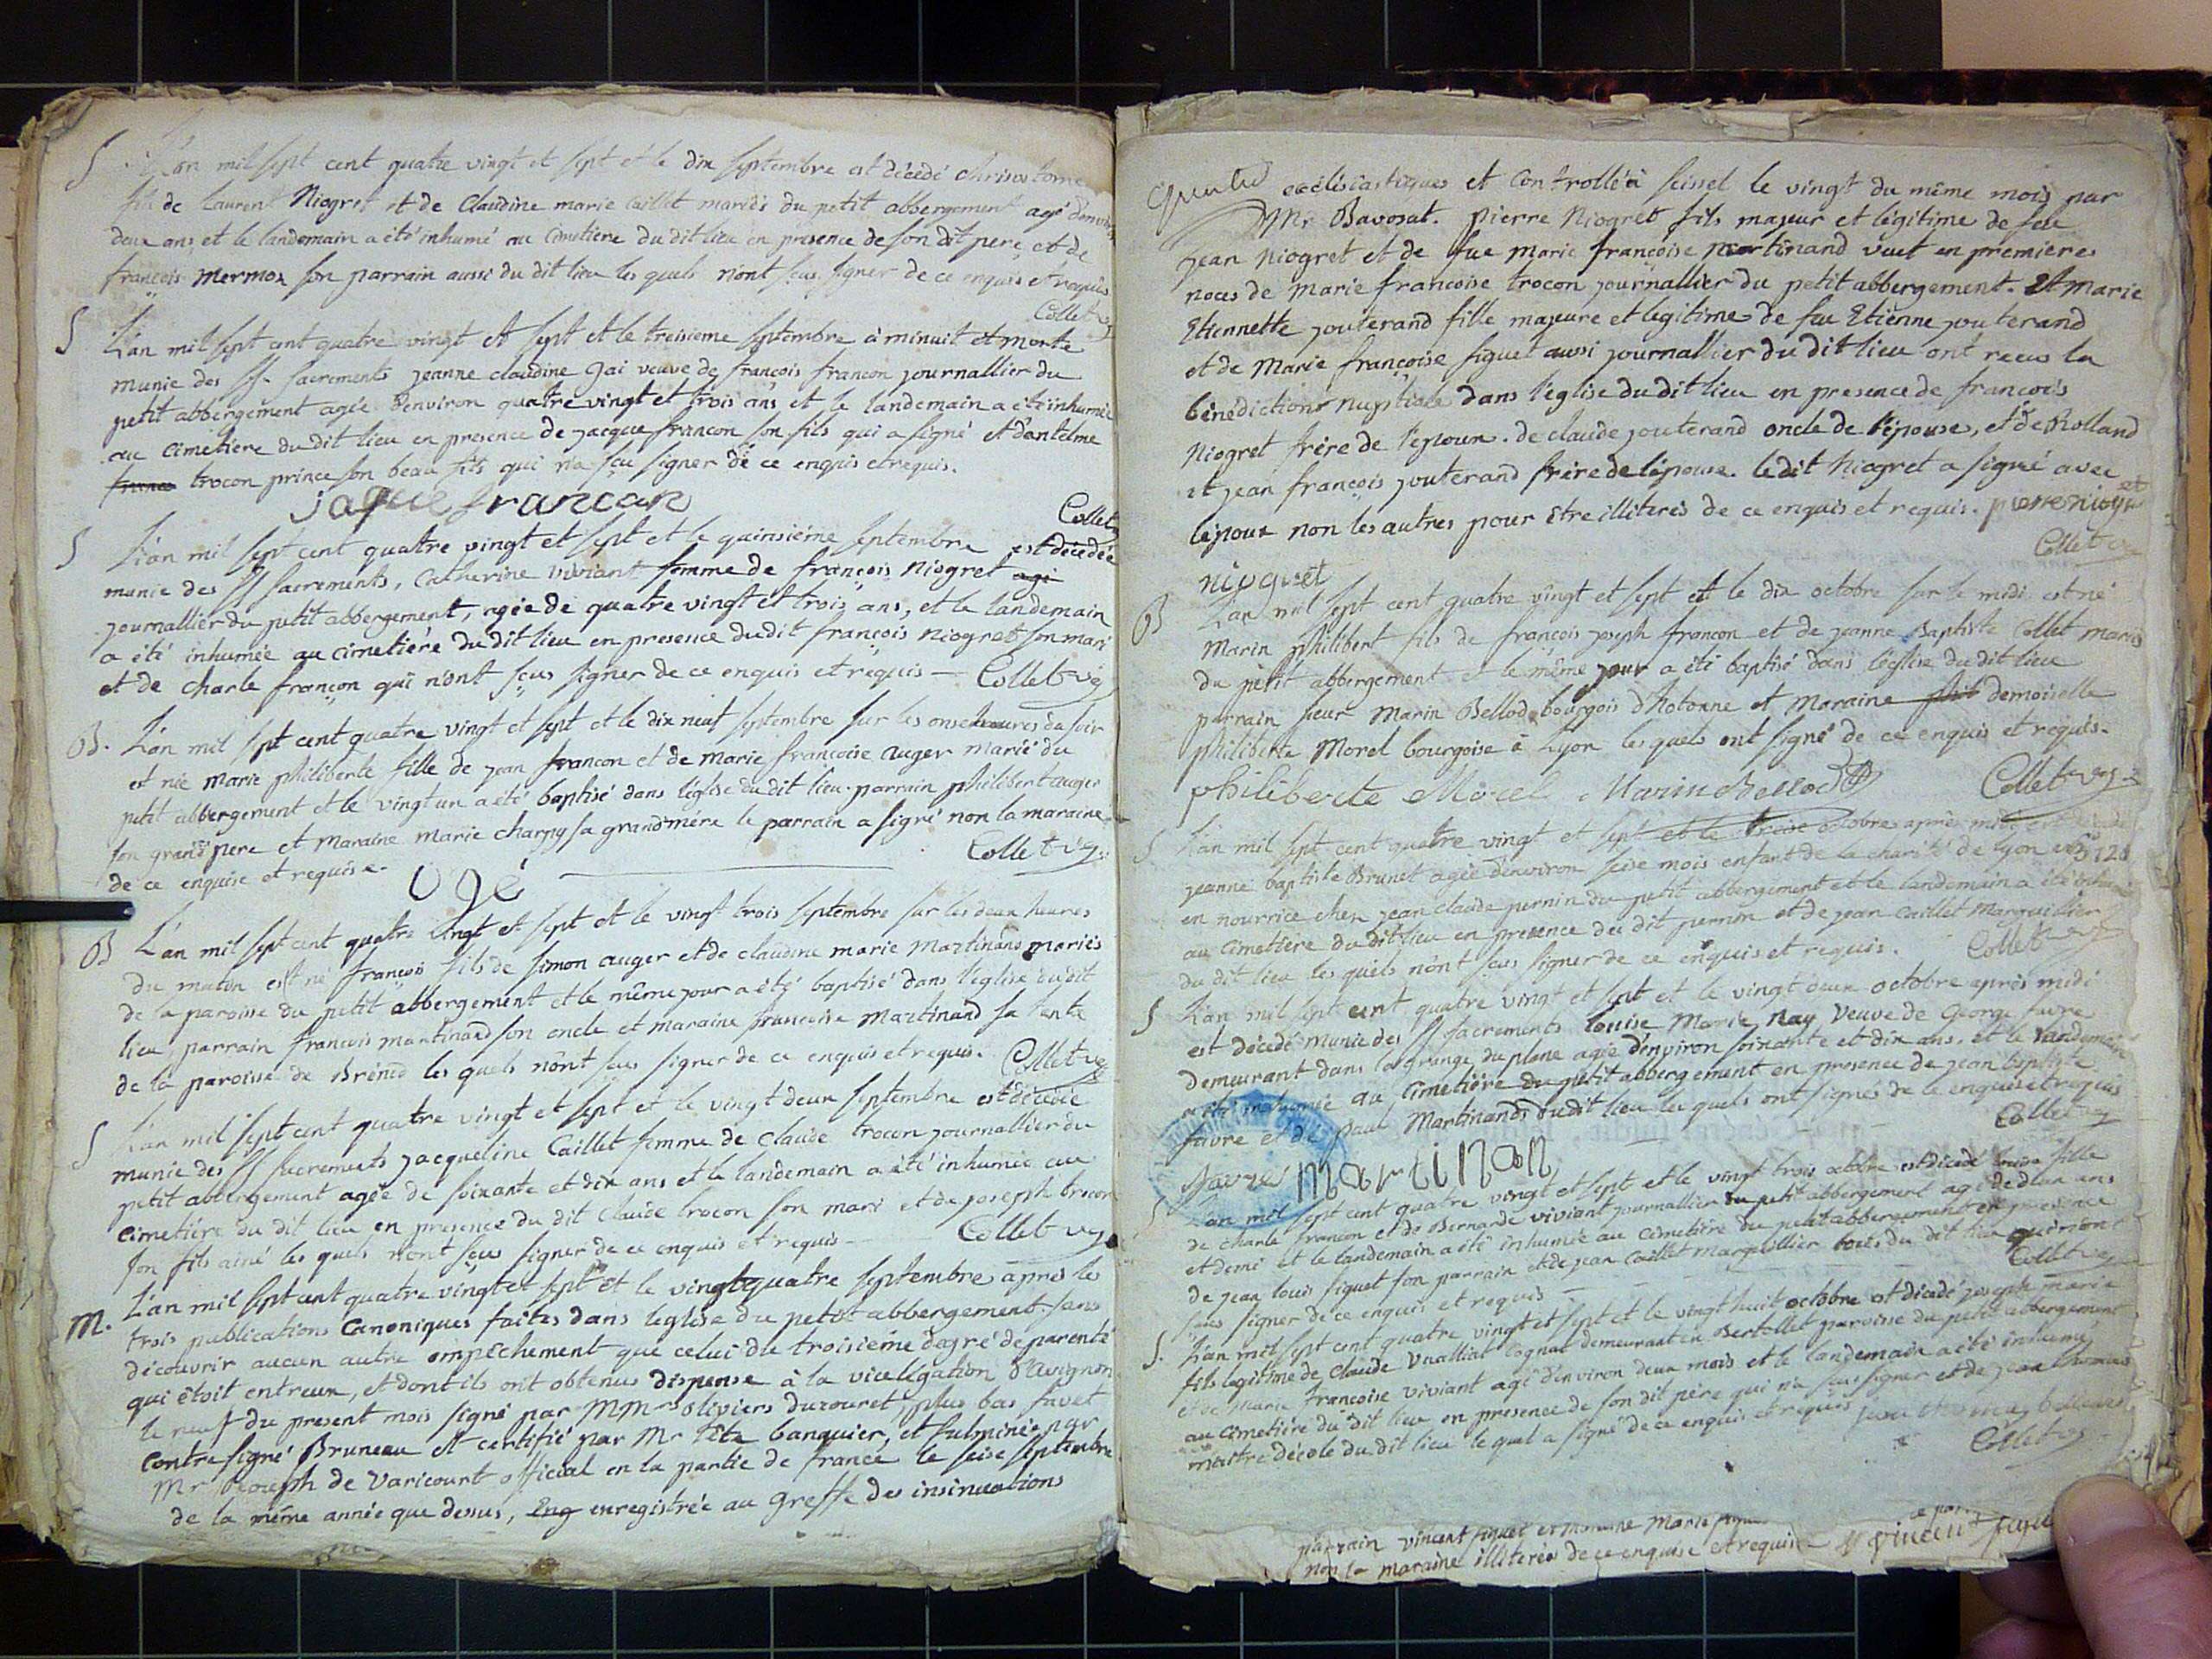 S L'an mil sept cent quatre vingt et sept et le dix septembre est décédé chrisostome
fils de Laurent Niogret et de Claudine marie Caillet mariés du petit abbergement agé d'environ
deux ans, et le landemain a été inhumé au cimetiere du dit lieu en presence de son dit pere et de
françois mermoz son parrain aussi du dit lieu les quels n'ont sçus signer de ce enquis et requis
Collet
S L'an mil sept cent quatre vingt et sept et le treisieme septembre à minuit est morte
munie des SS. sacrements jeanne claudine Jai veuve de françois francon journallier du
petit abbergement agée d'environ quatre vingt et trois ans et le landemain a été inhumée
au cimetiere du dit lieu en presence de jacque francon son fils qui a signé et d'antelme
trocon prince son beau fils qui n'a sçu signer de ce enquis et requis.
jaque francon
Collet
S L'an mil sept cent quatre vingt et sept et le quinsiéme septembre est décédée
munie des SS sacrements, Catherine viviant femme de françois Niogret agé
journallier du petit abbergement, agée de quatre vingt et trois ans, et le landemain
a été inhumée au cimetiére du dit lieu en presence du dit françois niogret son mari
et de charle françon qui n'ont sçus signer de ce enquis et requis — Collet vic
B. L'an mil sept cent quatre vingt et sept et le dix neuf septembre sur les onse heures du soir
et née marie philiberte fille de jean francon et de marie francoise auger marié du
petit abbergement et le vingt un a été baptisé dans l'église du dit lieu. parrain philibert auger
son grand pere et maraine marie charpy sa grand mére le parrain a signé non la maraine
de ce enquise et requise. Collet vic
ugé
B L'an mil sept cent quatre vingt et sept et le vingt trois septembre sur les deux heures
du matin est né françois fils de simon auger et de claudine marie martinand mariés
de la paroisse du petit abbergement et le même jour a été baptisé dans l'église du dit
lieu, parrain francois martinand son oncle et maraine francoise martinand sa tante
de la paroisse de Brénod les quels n'ont sçus signer de ce enquis et requis. Collet vic
S L'an mil sept cent quatre vingt et sept et le vingt deux septembre est décédée
munie des SS sacrements jacqueline Caillet femme de claude trocon journallier du
petit abbergement agée de soixante et dix ans et le landemain a été inhumée au
cimetiére du dit lieu en presence du dit claude trocon son mari et de joseph trocon
son fils ainé les quels n'ont sçus signer de ce enquis et requis — Collet vic
M. L'an mil sept cent quatre vingt et sept et le vingt quatre septembre après les
trois publications Canoniques faites dans l'eglise du petit abbergement sans
découvrir aucun autre empêchement que celui du troisiéme degré de parenté
qui étoit entreux, et dont ils ont obtenus dispense à la vicelégation d'avignon
le neuf du present mois signé par MMrs oliviers durouret, plus bas favet
contre signé Bruneau et certifié par Mr Tête banquier, et fulminée par
Mr Joseph de Varicourt official en la partie de france le seise septembre
de la même année que dessus, Eng enregistrée au greffe des insinuations
ecclésiastiques et controllé à seissel le vingt du même mois par
Mr Bavosat. pierre Niogret fils majeur et légitime de feu
jean niogret et de fue marie françoise martinand veuf en premieres
noces de marie francoise trocon journallier du petit abbergement. et marie
Etiennette jouterand fille majeure et légitime de fue Etiénne jouterand
et de Marie françoise siguet aussi journallier du dit lieu ont recus la
bénédiction nuptiale dans l'église du dit lieu en presence de françois
Niogret frère de l'epoux. de claude jouterand oncle de l'épouse, et de Rolland
et jean françois jouterand frère de l'épouse. le dit Niogret a signé avec
l'époux non les autres pour être illiterés de ce enquis et requis. pierre niogret
Collet vic
niogret
B L'an mil sept cent quatre vingt et sept et le dix octobre sur le midi est né
Marin philibert fils de françois joseph francon et de jeanne Baptiste Collet mariés
du petit abbergement et le même jour a été baptisé dans l'église du dit lieu
parrain sieur Marin Bellod bourgois d'hotonne et maraine demoiselle
philiberte Morel bourgoise à Lyon les quels ont signé de ce enquis et requis.
philiberte Morel Marin Bellod Collet vic
S L'an mil sept cent quatre vingt et sept et le treise octobre après midi est décédé
jeanne baptiste Brunet agée d'environ seise mois enfant de la charité de Lyon
en nourrice chez jean claude pernin du petit abbergement et le landemain a été inhumée
au cimetiére du dit lieu en presence du dit pernin et de jean caillet marguillier
du dit lieu les quels n'ont sçus signer de ce enquis et requis. Collet vic
S L'an mil sept cent quatre vingt et sept et le vingt deux octobre après midi
est décédé munie des SS sacrements Louise Marie Nay veuve de George favre
demeurant dans la grange du plane agée d'environ soixante et dix ans, et le landemain
a été inhumée au cimetiére du petit abbergement en presence de jean baptiste
favre et de paul Martinand du dit lieu les quels ont signés de ce enquis et requis
Collet vic
favre martinan
S L'an mil sept cent quatre vingt et sept et le vingt trois octobre est décédé Louise fille
de charle francon et de Bernarde viviant journallier du petit abbergement agée de deux ans
et demi et le landemain a été inhumée au cimetiére du petit abbergement en presence
de jean louis siguet son parrain et de jean caillet marguillier tous du dit lieu qui n'ont
sçus signer de ce enquis et requis — Collet vic
S. L'an mil sept cent quatre vingt et sept et le vingt huit octobre est décédé joseph marie
fils legitime de claude vualliat Cognat demeurant en Bertollet paroisse du petit abbergement
et de marie francoise viviant agé d'environ deux mois et le landemain a été inhumé
au cimetiére du dit lieu en presence de son dit pére qui n'a sçus signer et de jean thomas
maitre d'école du dit lieu le quel a signé de ce enquis et requis jean thomas
Collet vic
parrain vincent siguet et maraine Marie
non la maraine illiterée de ce enquise et requise vincent